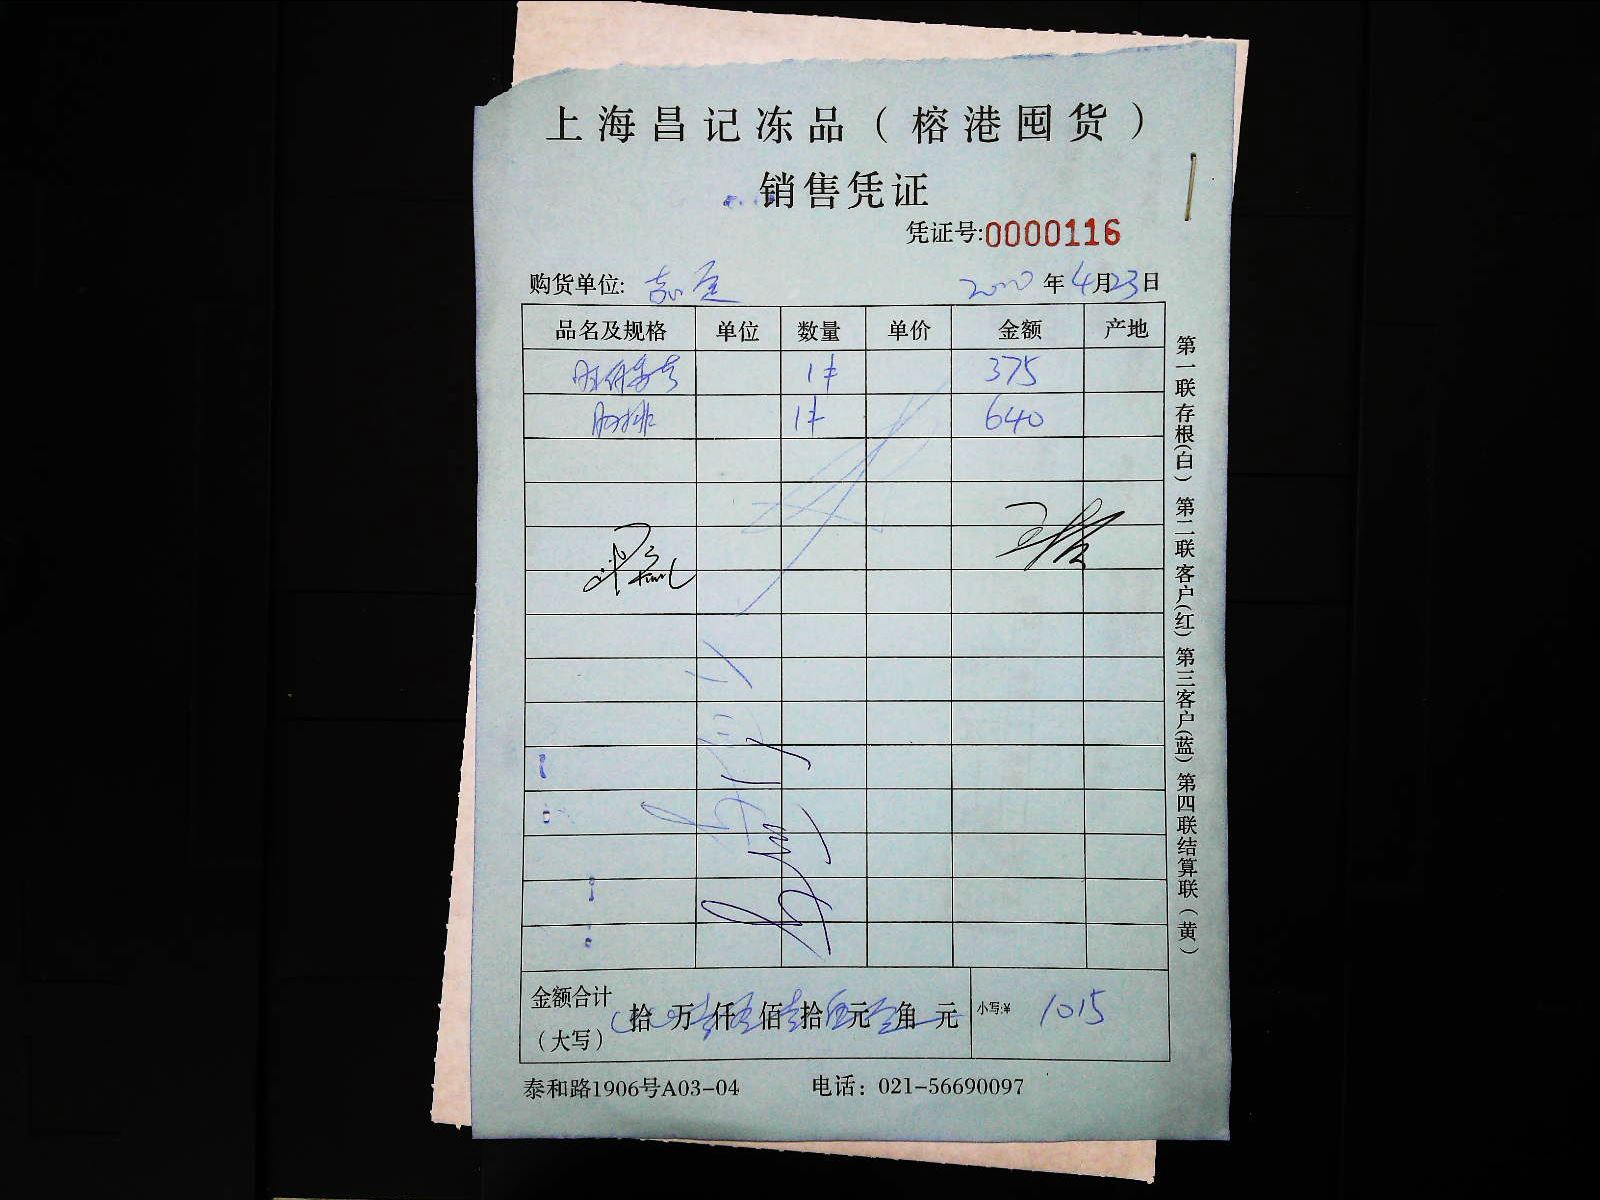 上海昌记冻品（榕港囤货）
销售凭证
凭证号:0000116
购货单位: 年4月23日
品名及规格 单位 数量 单价 金额 产地
1件 375
1件 640
金额合计（大写） 拾 万 仟 佰 拾 元 角 元 小写:¥ 1015
泰和路1906号A03-04 电话：021-56690097
第一联存根(白) 第二联客户(红) 第三客户(蓝) 第四联结算联(黄)